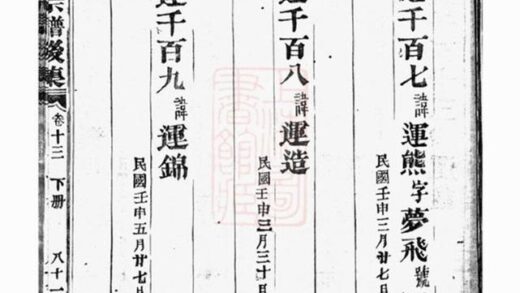 運千百七諱運熊字夢飛號
民國壬申三月廿七日
運千百八諱運造
民國壬申三月三十日
運千百九諱運錦
民國壬申五月廿七日
宗譜後集 卷十三 下册 八十一